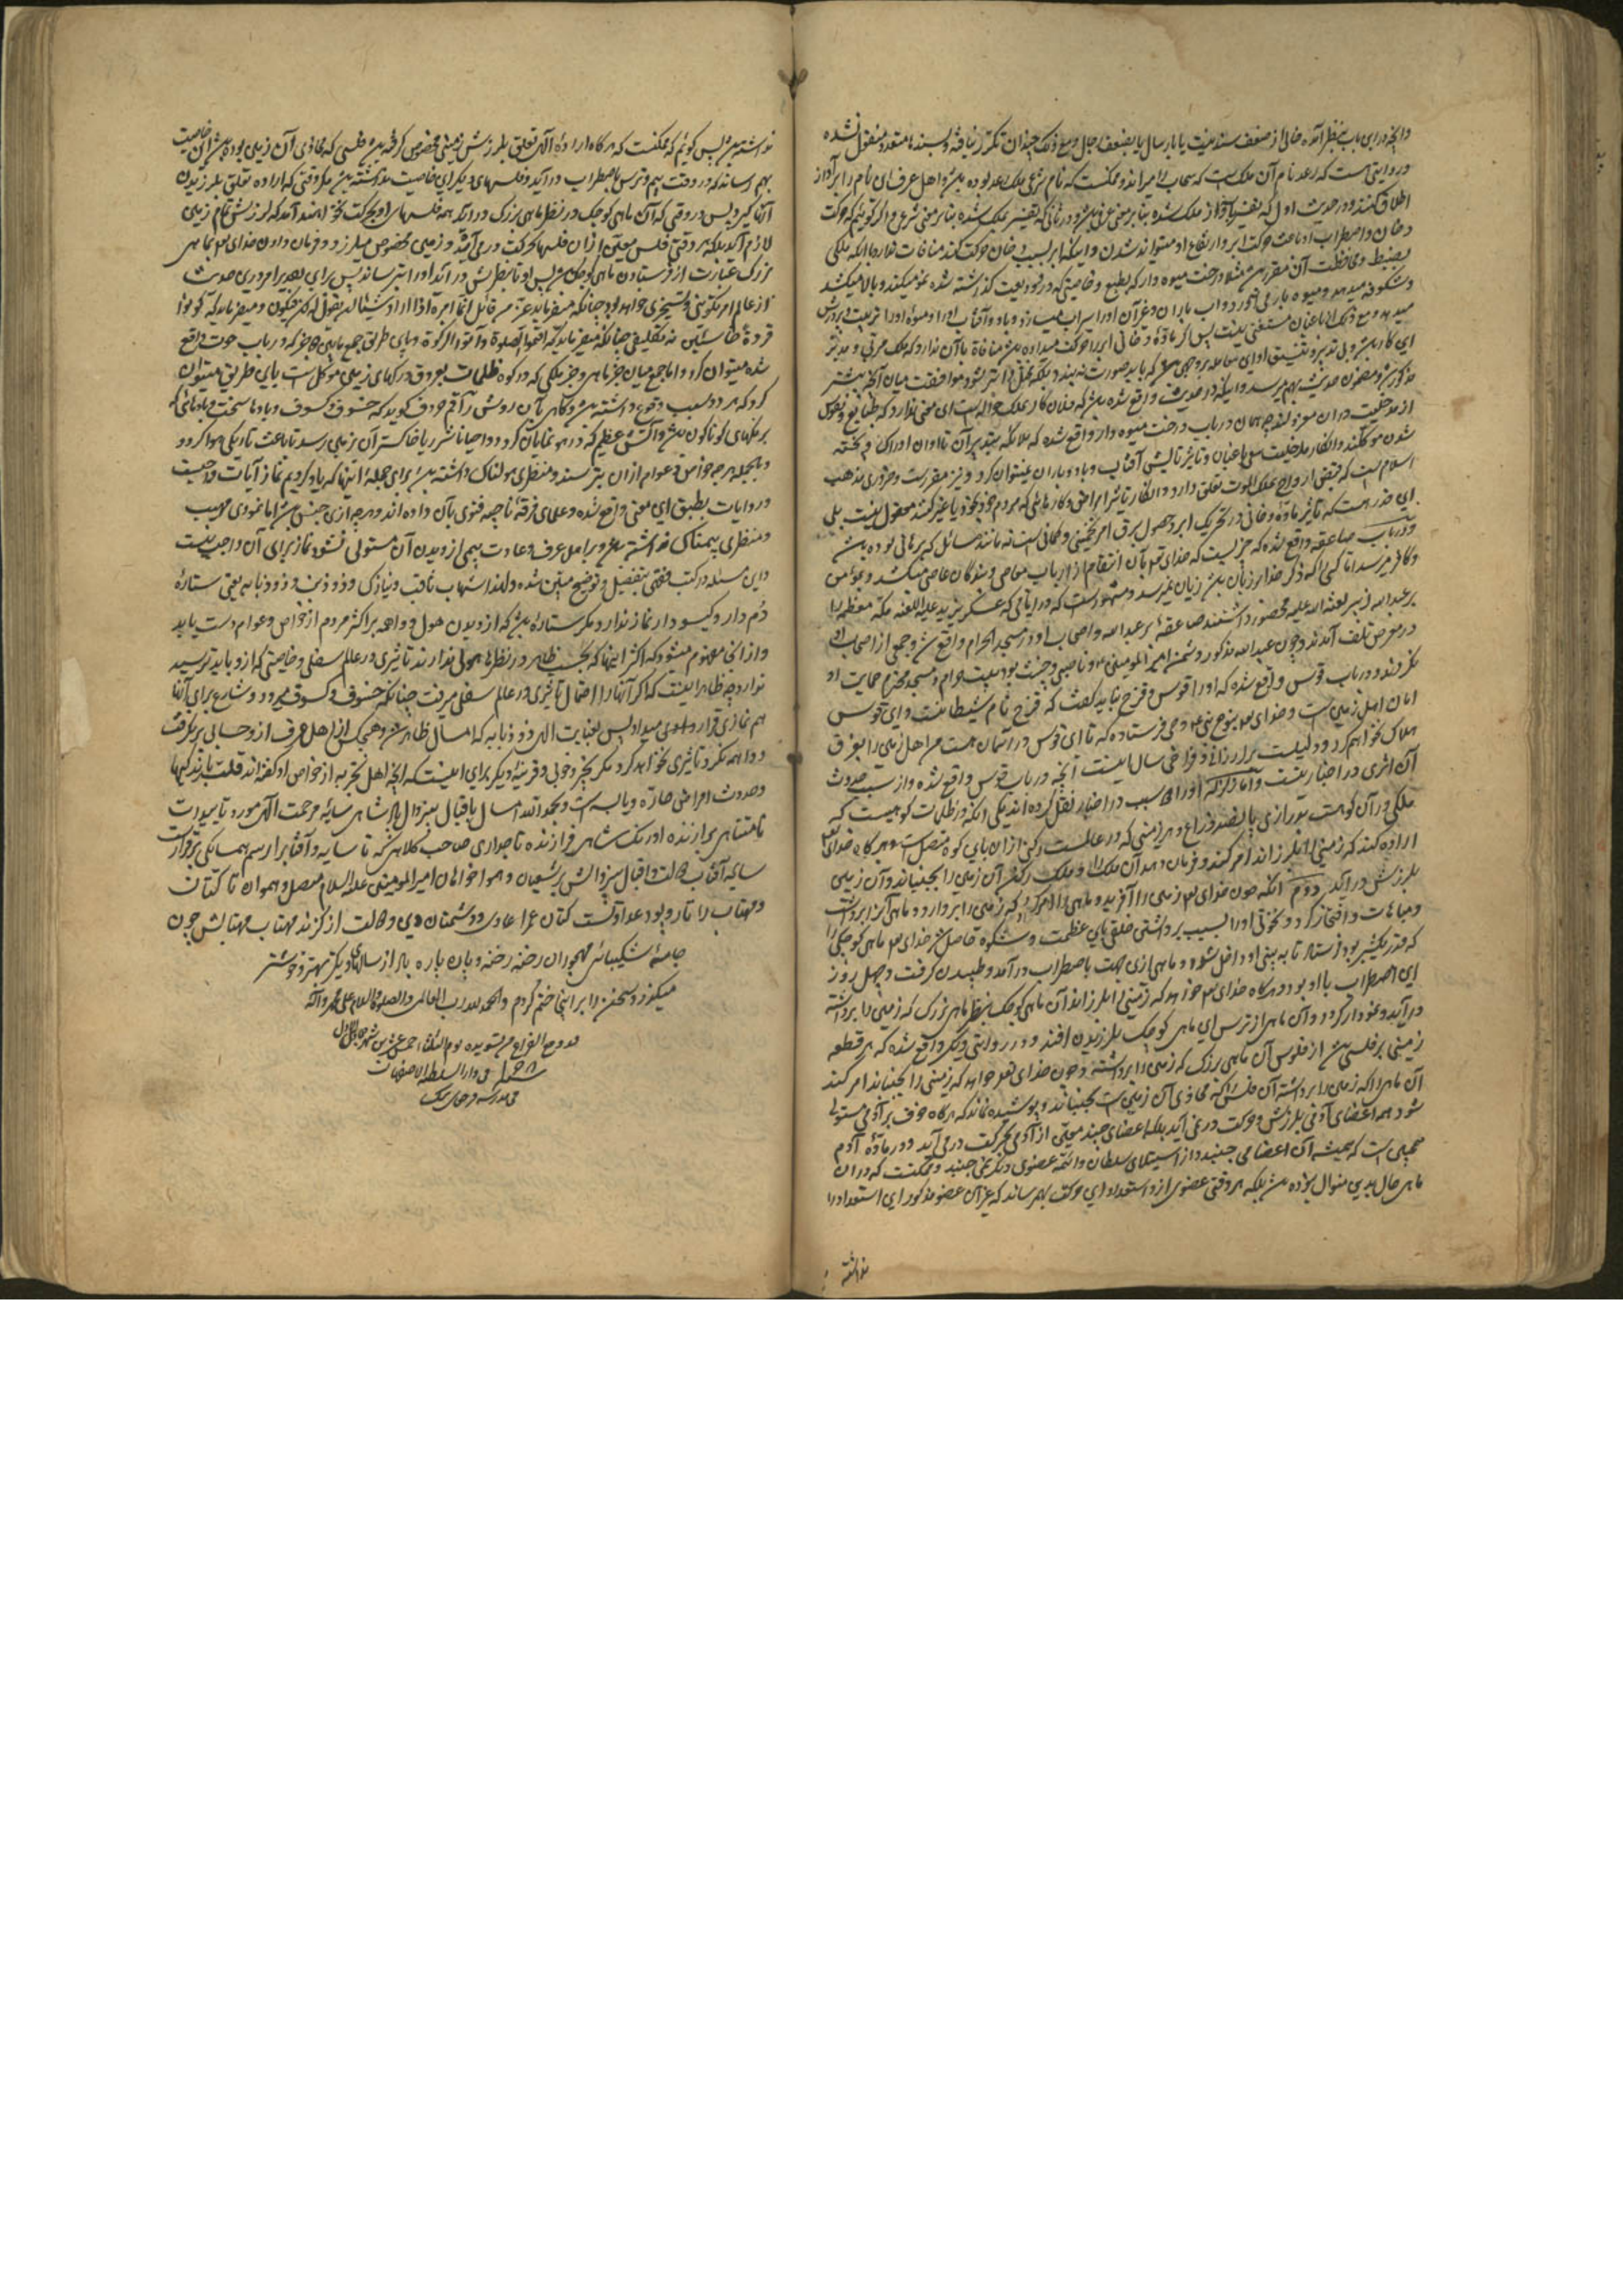 وانچه در این باب بنظر آمده خالی از ضعف سند نیست یا بارسال یا بضعف رجال و مع ذلک چندان تکرر نیافته و بسندهای متعدد منقول نشده
و در روایتی است که رعد نام آن ملک است که سحاب را میراند و ممکنست که نام شرعی ملک رعد بوده باشد و اهل عرف این نام را بر آواز
اطلاق کنند و در حدیث اول که تفسیر بآواز ملک شده بنا بر معنی عرفی باشد و در ثانی که تفسیر بملک شده بنا بر معنی شرعی و اگر گوئیم که حرکت
دخان و اضطراب او باعث حرکت ابر و ارتفاع او میتواند شدن و اینکه ابر بسبب دخان حرکت کند منافات ندارد با آنکه ملکی
بضبط و محافظت آن مقرر باشد مثلا درخت میوه دار که بطبع و خاصیتی که در او ودیعت گذاشته شده نمو میکند و بالا میکشد
و شکوفه میدهد و میوه بار می آورد و آب باران و غیر آن او را سیراب میسازد و باد و آفتاب او را و میوه او را تربیت و پرورش
میدهد و مع ذلک از باغبان مستغنی نیست پس اگر ماده دخانی ابر را حرکت میداده باشد منافاة با آن ندارد که ملک مربی و مدبر
این کار باشد و بی تدبیر و تنسیق او این معامله بر وجهی که باید صورت نه بندد
مذکور و مضمون حدیث بهم میرسد و اینکه در حدیث واقع شده باشد که فلان کار بملک حواله است این معنی ندارد که طبایع و نفوس
از مدخلیت در آن معزولند چه همان در باب درخت میوه دار واقع شده که ملائکه بتدبیر آن تا اوان ادراک و پخته
شدن موکلند و انکار مدخلیت سعی باغبان و تاثیر تابش آفتاب و باد و باران نمیتوان کرد و نیز مقرر است و ضروری مذهب
اسلام است که قبض ارواح بملک الموت تعلق دارد و انکار تاثیر امراض و کارهائی که مردم با خود یا غیر کنند معقول نیست بلی
این قدر هست که تاثیر ماده دخانی در تحریک ابر و حصول برق امر تخمینی و گمانی است نه مانند مسائل که برهانی بوده باشد
و در باب صاعقه واقع شده که چیزیست که خدای تع بآن انتقام از ارباب معاصی و بندگان عاصی میکشد و بمؤمن
و کافر میرسد اما کسی را که ذکر خدا بر زبان باشد زیان نمیرسد و مشهور است که در ایامی که عسکر یزید علیه اللعنه مکه معظمه را
بر عبد الله زبیر لعنة الله علیه محصور داشتند صاعقه بر عبد الله و اصحاب او در مسجد الحرام واقع شد و جمعی از اصحاب او
در معرض تلف آمدند و چون عبد الله مذکور دشمن امیر المومنین و ناصبی و خبیث بود بیت حرام و مسجد محترم حمایت او
نکردند و در باب قوس واقع شده که او را قوس قزح نباید گفت که قزح نام شیطانست و این قوس
امان اهل زمین است و خدای تع بنوح نبی ع وحی فرستاده که تا این قوس در آسمان هست من اهل زمین را بغرق
هلاک نخواهم کرد و دلیلست بر ارزانی و فراخی سال اینست آنچه در باب قوس واقع شده و از سبب حدوث
آن اثری در اخبار نیست و اما زلزله او را سبب در اخبار نقل کرده اند یکی آنکه در ظلمات کوهیست که
ملکی در آن کوه است
اراده کند که زمینی را بلرزاند امر کند و فرمان دهد آن ملک را و ملک رگ آن زمین را بجنباند و آن زمین
بلرزش در آید دوم آنکه چون خدای تع زمین را آفرید و ماهی را امر کرد که زمین را بردارد و ماهی آنرا برداشت
و مباهات و افتخار کرد و نخوتی او را بسبب برداشتن خلقی باین عظمت و شکوه حاصل شد خدای تع ماهی کوچکی را
که قدر یکشبر بود فرستاد تا به بینی او داخل شود و ماهی ازین جهت باضطراب در آمد و طپیدن گرفت و چهل روز
این اضطراب با او بود و هرگاه خدای تع خواهد که زمینی را بلرزاند آن ماهی کوچک بنظر ماهی بزرگ که زمین را برداشته
در آید و نمودار گردد و آن ماهی از ترس این ماهی کوچک بلرزیدن افتد و در روایتی دیگر واقع شده که هر قطعه
زمینی بر فلسی باشد از فلوس آن ماهی بزرگ که زمین را برداشته و چون خدای تع خواهد که زمینی را بجنباند امر کند
آن ماهی را که زمین را برداشته آن فلس را که محاذی آن زمین است بجنباند و پوشیده نماند که هرگاه خوف بر آدمی مستولی
شود همه اعضای آدمی بلرزش و حرکت در نمی آید بلکه اعضای چند معین از آدمی بحرکت در می آید و در ماده آدم
همچنین است که همیشه آن اعضا می جنبند و از استیلای سلطان واهمه عضوی دیگر نمی جنبد و ممکنست که در آن
ماهی حال بدین منوال بوده باشد بلکه هر وقتی عضوی ازو استعداد این حرکت بهم رساند که غیر آن عضو مذکور این استعداد را
نداشته
نداشته باشد پس گوئیم که ممکنست که هرگاه اراده الهی تعلق بلرزش زمینی مخصوص گرفته باشد فلسی که محاذی آن زمین بوده باشد این خاصیت
بهم رساند که در وقت بیم و ترس باضطراب در آید و فلسهای دیگر این خاصیت نداشته باشند مگر وقتی که اراده تعلق بلرزیدن
آنها گیرد پس در وقتی که آن ماهی کوچک در نظر ماهی بزرگ در آید همه فلسهای او بحرکت نخواهند آمد که لرزش تمام زمین
لازم آید بلکه هر وقتی فلس معین از آن فلسها بحرکت در می آید و زمین مخصوص میلرزد و فرمان دادن خدای تع بماهی
بزرگ عبارت از فرستادن ماهی کوچک باشد پس او تا بنظرش در آید و او را بترساند
از عالم امر تکوینی و تسخیری خواهد بود چنانکه میفرماید عز من قائل انما امره اذا اراد شیئا ان یقول له کن فیکون و میفرماید که کونوا
قردة خاسئین نه تکلیفی چنانکه میفرماید که اقیموا الصلوة و آتوا الزکوة و باین طریق جمع مابین دو خبر که در باب حوت واقع
شده میتوان کرد و اما جمع میان خبر ماهی و خبر ملکی که در کوه ظلمات بعروق و رگهای زمین موکل است باین طریق میتوان
کرد که هر دو سبب وقوع داشته باشد و گاهی بآن روش راقم حروف گوید که خسوف و کسوف و بادها سخت و بادهائی که
برنگهای گوناگون باشد و آتش عظیم که در هوا نمایان گردد و احیانا شرر یا خاکستر آن بزمین رسد تا باعث تاریکی هوا گردد
و بالجمله هر چه خواص و عوام از آن بترسند و منظری هولناک داشته باشد برای جمله اینها که یاد کردیم نماز آیات واجبست
و روایات بطبق این معنی واقع شده و علمای فرقه ناجیه فتوی بآن داده اند و هر چه ازین جنس باشد اما نمودی مهیب
و منظری بیمناک نداشته باشد و بر اهل عرف و عادت بیمی از دیدن آن مستولی نشود نماز برای آن واجب نیست
و این مسئله در کتب فقهی بتفصیل و توضیح مبین شده و لهذا شهاب ثاقب و نیازک و ذوذنب و ذوذنابه یعنی ستاره
دم دار و گیسو دار نماز ندارد مگر ستاره باشد که از دیدن هول و واهمه بر اکثر مردم از خواص و عوام دست یابد
و از اینجا مفهوم میشود که اکثر اینها که بحسب ظاهر در نظرها هولی ندارند تاثیری در عالم سفلی و خاصیتی که ازو باید ترسید
ندارد چه ظاهر اینست که اگر آنها را احتمال تاثیری در عالم سفلی میرفت چنانکه خسوف و کسوف میرود و شارع برای آنها
هم نمازی قرار دادی میداد پس بعنایت الهی ذوذنابه که امسال ظاهر شد و هیچیک از اهل عرف ازو حسابی برنگرفت
و واهمه نکرد تاثیری نخواهد کرد مگر بخیر و خوبی و قرینه دیگر برای اینست که آنچه اهل تجربه از خواص او گفته اند قلت بارندگیها
و حدوث امراض حاره و یابسه است و بحمد الله امسال باقبال بیزوال پادشاهی سایه مرحمت الهی مورد تاییدات
نامتناهی برازنده اورنگ شاهی فرازنده تاجداری صاحب کلاهی که تا سایه و آفتاب را رسم همسایگی برقرارست
سایه آفتاب دولت و اقبال بیزوالش بر شیعیان و هواخواهان امیر المومنین علیه السلام متصل و هموار تا کتان
و مهتاب را تار و پود عداوتست کتان عمر اعادی و دشمنان دین و دولت از گزند مهتاب مهتابش چون
جامه شکیبائی مهجوران رخنه رخنه و پاره پاره باد از سالهای دیگر بهتر و خوشتر
میگذرد و سخن را بر اینجا ختم کردم و الحمد لله رب العالمین و الصلوة و السلام علی محمد و آله
قد وقع الفراغ من تسویده یوم الثلثاء خمس عشرین شهر جمادی الاول
فی دار السلطنة اصفهان
فی مدرسه